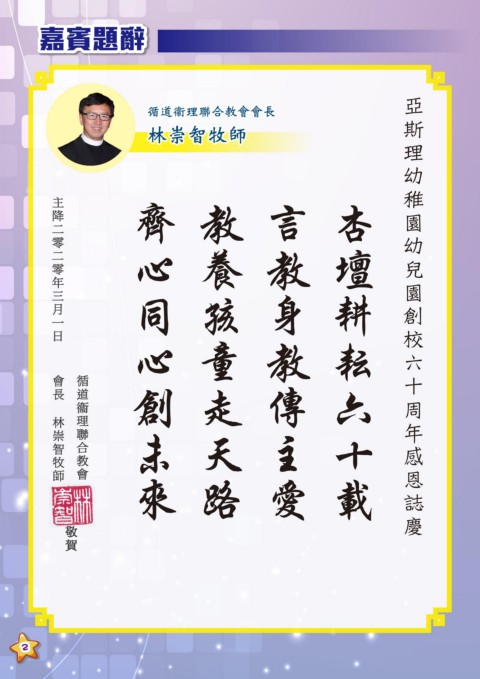 嘉賓題辭
循道衞理聯合教會會長
林崇智牧師
亞斯理幼稚園幼兒園創校六十周年感恩誌慶
杏壇耕耘六十載
言教身教傳主愛
教養孩童走天路
齊心同心創未來
循道衞理聯合教會
會長 林崇智牧師
林崇智
敬賀
主降二零二零年三月一日
2